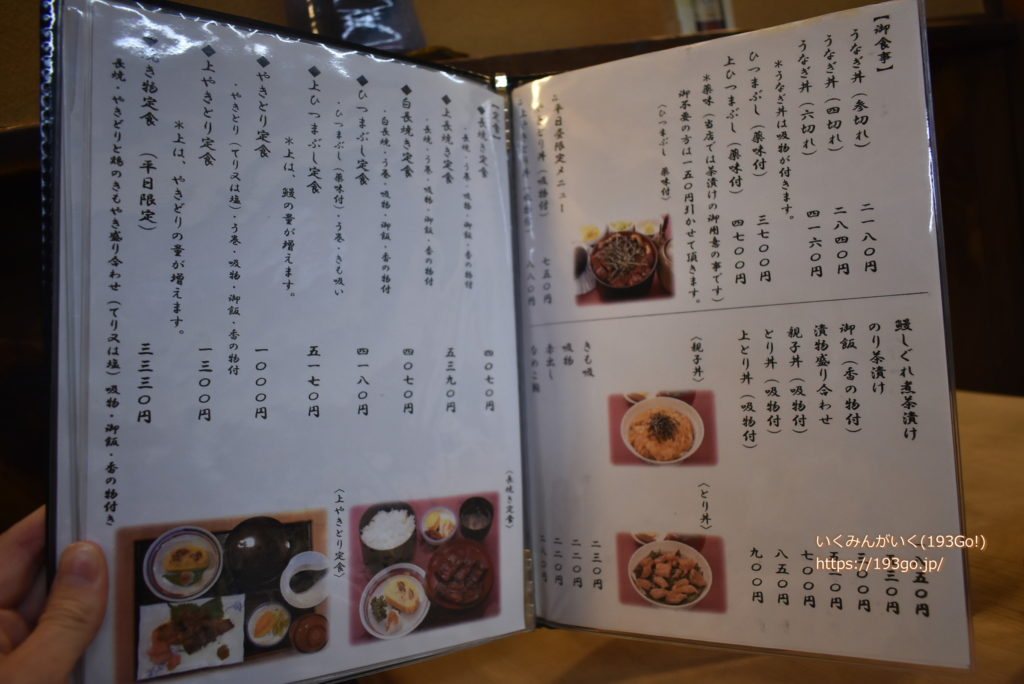 【御食事】
うなぎ丼（参切れ） 二一八〇円
うなぎ丼（四切れ） 二八四〇円
うなぎ丼（六切れ） 四一六〇円
＊うなぎ丼は吸物が付きます。
ひつまぶし（薬味付） 三七〇〇円
上ひつまぶし（薬味付） 四七〇〇円
＊薬味（当店では茶漬けの御用意の事です）
御不要の方は一五〇円引かせて頂きます。
（ひつまぶし 薬味付）
平日昼限定メニュー
（吸物付） 七五〇円
鰻しぐれ煮茶漬け
のり茶漬け
御飯（香の物付）
漬物盛り合わせ
親子丼（吸物付） 七〇〇円
とり丼（吸物付） 八五〇円
上とり丼（吸物付） 九〇〇円
（親子丼）
（とり丼）
きも吸 二三〇円
吸物
赤出し
長焼・う巻・吸物・御飯・香の物付 四〇七〇円
◆上長焼き定食 五三九〇円
・長焼・う巻・吸物・御飯・香の物付
◆白長焼き定食 四〇七〇円
・白長焼・う巻・吸物・御飯・香の物付
◆ひつまぶし定食 四一八〇円
・ひつまぶし（薬味付）・う巻・きも吸い
◆上ひつまぶし定食 五一七〇円
＊上は、鰻の量が増えます。
◆やきとり定食 一〇〇〇円
・やきとり（てり又は塩）・う巻・吸物・御飯・香の物付
◆上やきとり定食 一三〇〇円
＊上は、やきとりの量が増えます。
き物定食（平日限定） 三三三〇円
長焼・やきとりと鶏のきもやき盛り合わせ（てり又は塩）・吸物・御飯・香の物付き
（長焼き定食）
（上やきとり定食）
いくみんがいく(193Go!)
https://193go.jp/